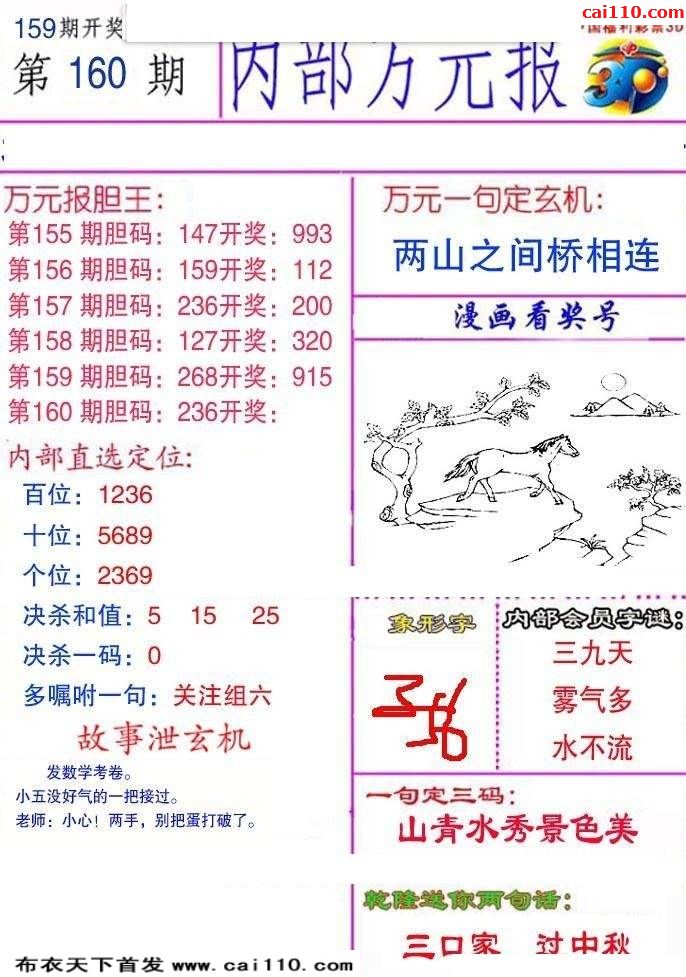 cai110.com
159期开奖
中国福利彩票3D
第 160 期
内部万元报
3D
万元报胆王：
第155 期胆码：147开奖：993
第156 期胆码：159开奖：112
第157 期胆码：236开奖：200
第158 期胆码：127开奖：320
第159 期胆码：268开奖：915
第160 期胆码：236开奖：
内部直选定位：
百位：1236
十位：5689
个位：2369
决杀和值：5 15 25
决杀一码：0
多嘱咐一句：关注组六
故事泄玄机
发数学考卷。
小五没好气的一把接过。
老师：小心！两手，别把蛋打破了。
万元一句定玄机：
两山之间桥相连
漫画看奖号
象形字
内部会员字谜：
三九天
雾气多
水不流
一句定三码：
山青水秀景色美
乾隆送你两句话：
三口家 过中秋
布衣天下首发 www.cai110.com